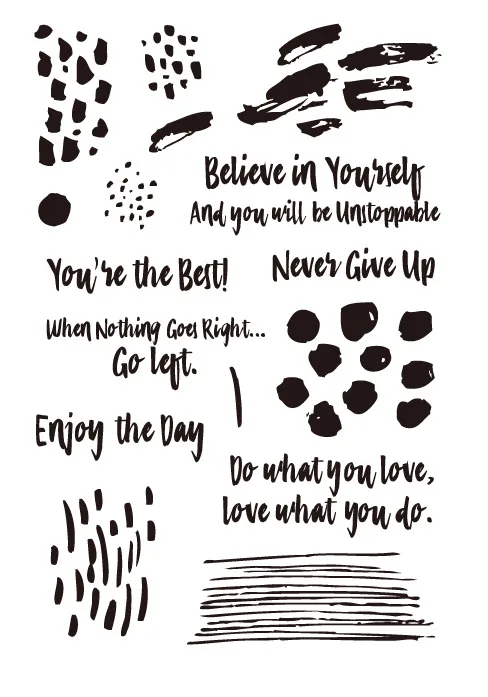 Believe in Yourself
And you will be Unstoppable
You're the Best!
Never Give Up
When Nothing Goes Right...
Go left.
Enjoy the Day
Do what you love,
love what you do.